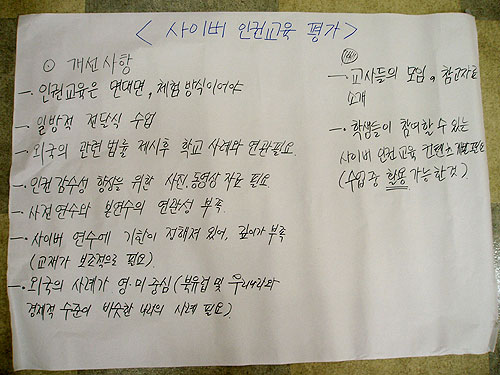 < 사이버 인권교육 평가 >
⊙ 개선사항
- 인권교육은 면대면, 체험방식이어야
- 일방적 전달식 수업
- 외국의 관련 법률 제시후 학교 사례와 연관필요.
- 인권감수성 향상을 위한 사진, 동영상 자료 필요.
- 사전연수와 본연수의 연관성 부족.
- 사이버 연수에 기한이 정해져 있어, 깊이가 부족
(교재가 보조적으로 필요)
- 외국의 사례가 영·미 중심 (북유럽 및 우리나라와
경제적 수준이 비슷한 나라의 사례 필요).
- 교사들의 모임, 참고자료
소개
- 학생들이 참여할 수 있는
사이버 인권 교육 컨텐츠
(수업중 활용 가능한 것)